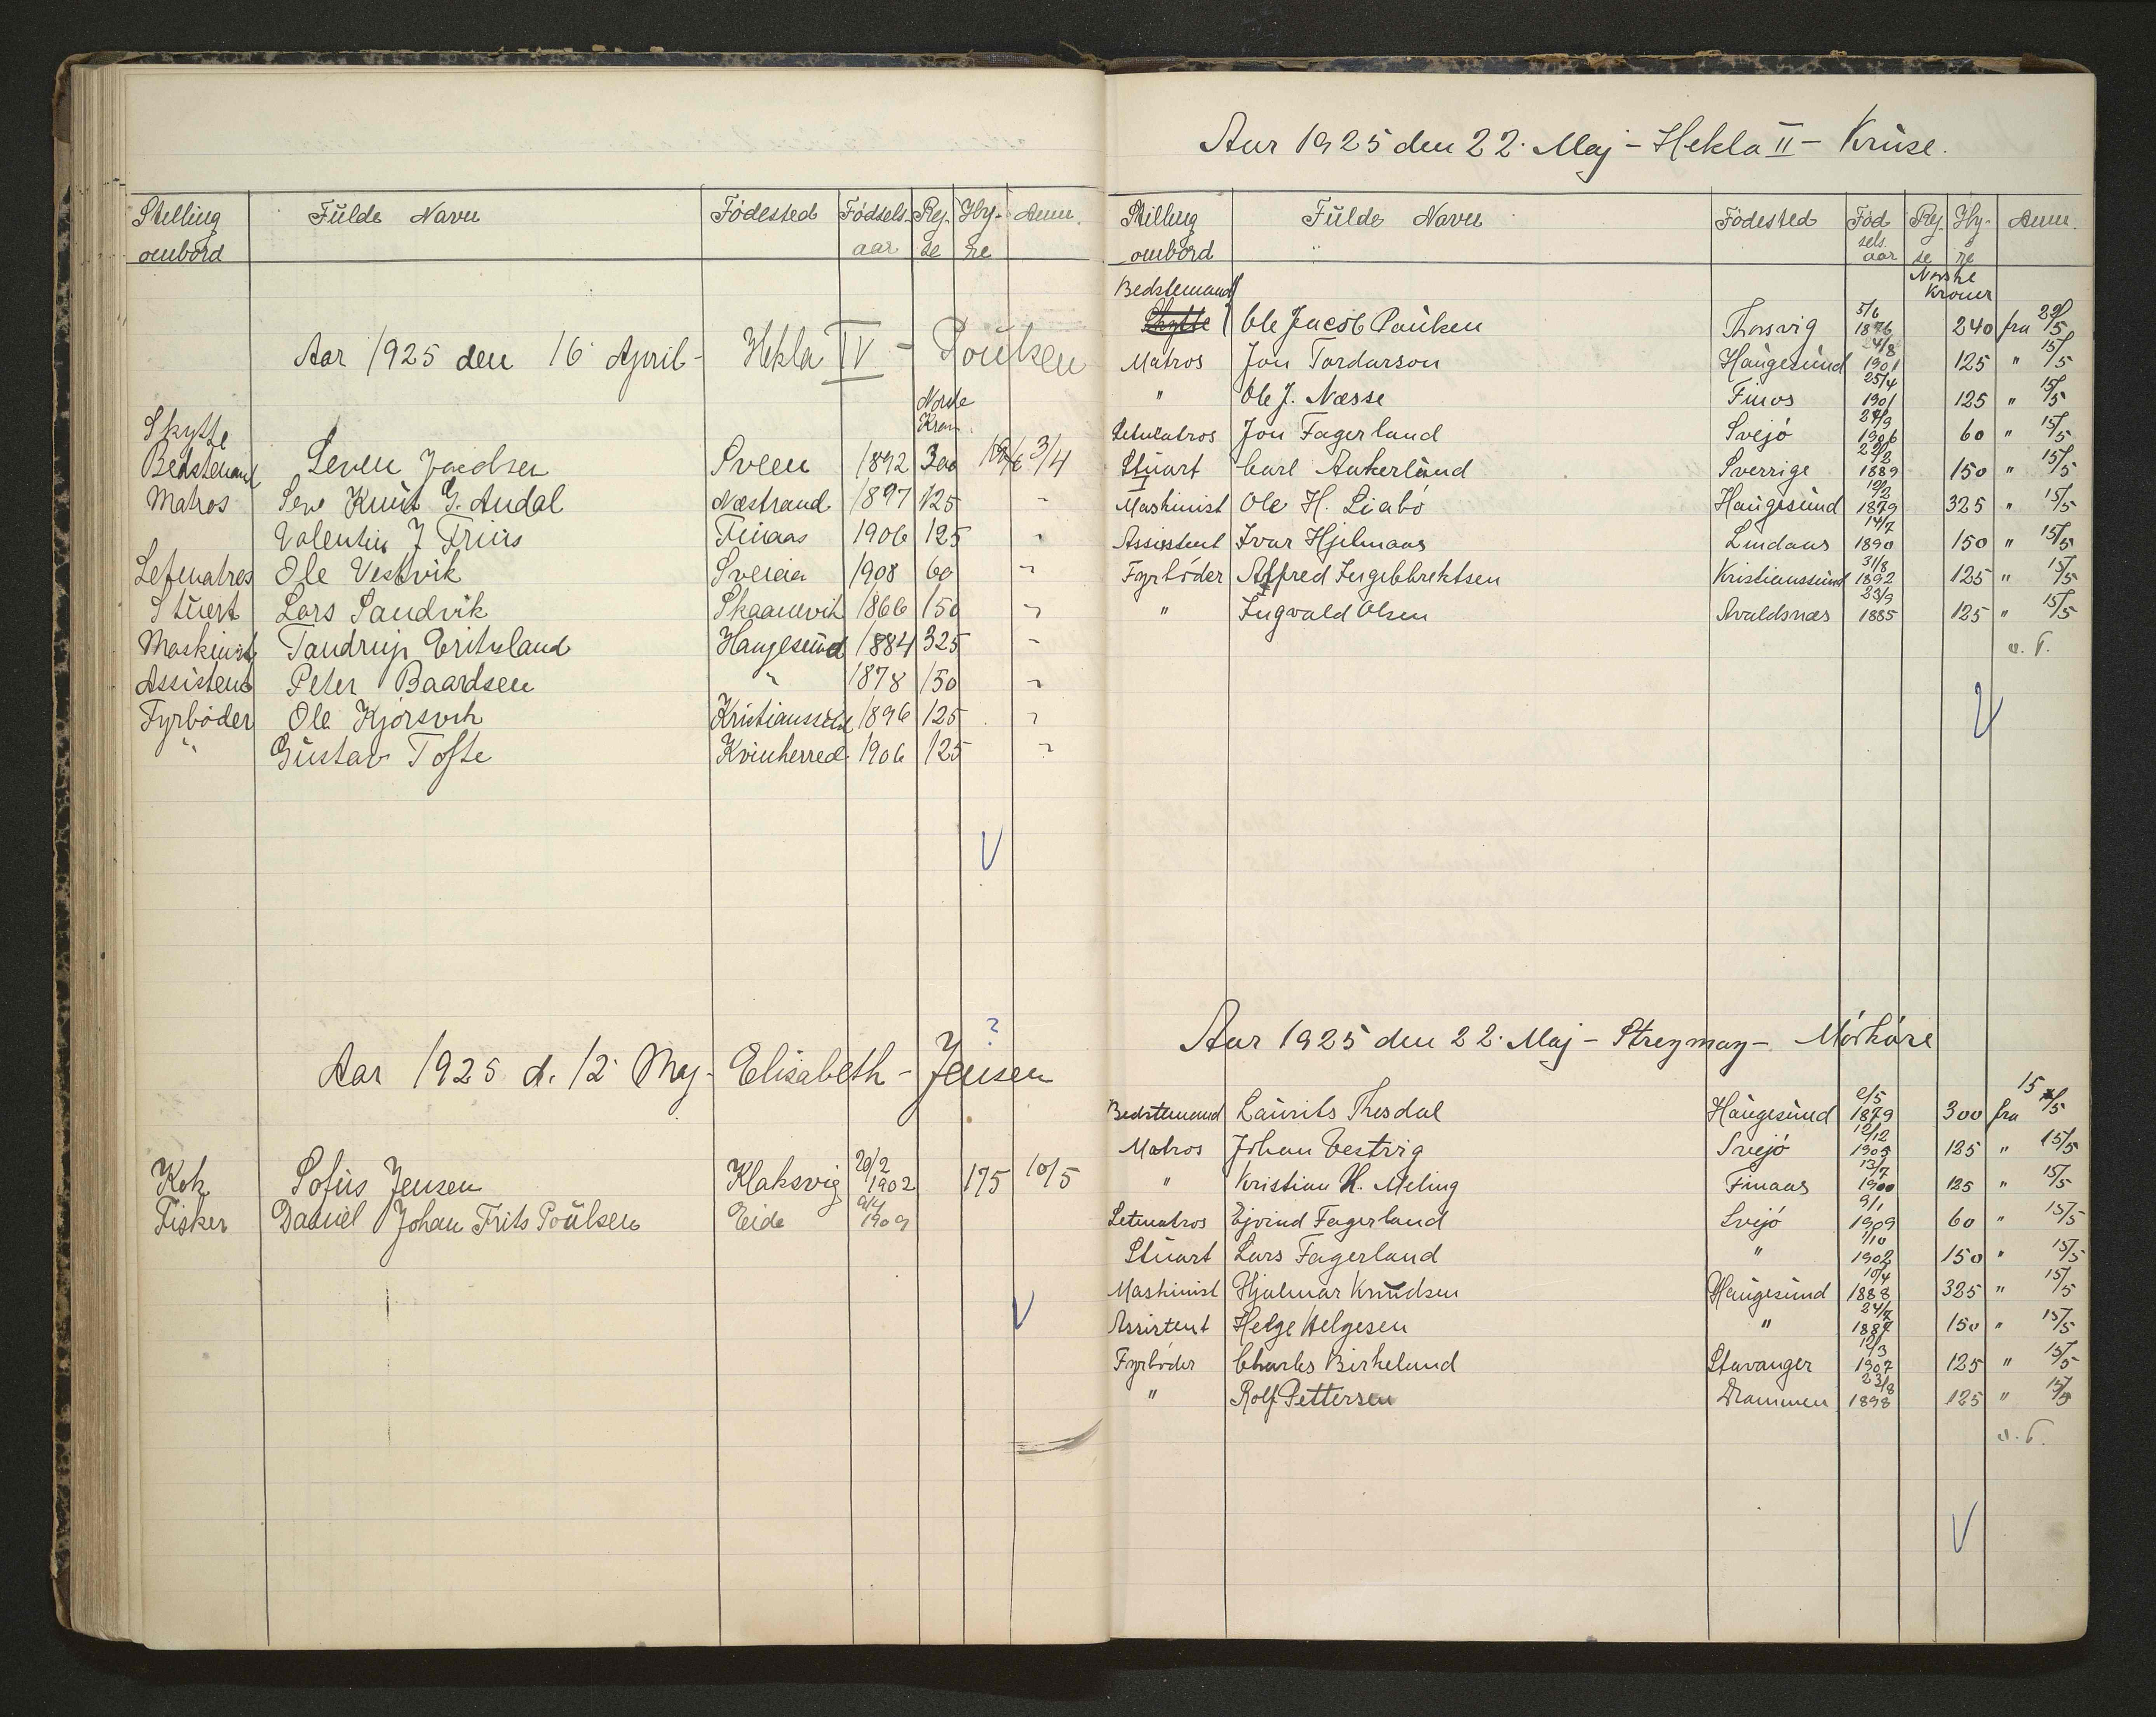 Stilling Fülde Navn Födested Födsels- Rej- Hy- Anm.
ombord aar se re
Aar 1925 den 16 April - Hekla IV - Poulsen
Norske
Kron.
Skytte
Bedstemand Sveen 1892 300 3/4
Matros Knüt G. Andal Næstrand 1897 125 "
Valentin J Friis Finaas 1906 125 "
Letmatros Ole Vestvik Sveien 1908 60 "
Stüert Lars Sandvik Skaanevik 1866 150 "
Maskinist Tandrup Haugesund 1884 325 "
Assistent Peter Baardsen " 1878 150 "
Fyrböder Ole Kjörsvik Kristianssund 1896 125 "
" Güstav Tofte Kvinherred 1906 125 "
?
Aar 1925 d. 12 Maj - Elisabeth - Jensen
Kok Sofüs Jensen Klaksvig 20/2 1902 175 10/5
Fisker Daniel Johan Frits Poülsen Eide 9/4 1909
Aar 1925 den 22. Maj - Hekla II - Krüse.
Stilling Fülde Navn Födested Föd Rej- Hy- Anm.
ombord sels. aar se re
Bedstemand Norske Kroner
Skytte Ole Jacob Paulsen Thorsvig 5/6 1876 240 fra 22/5
Matros Jon Tordarson Haugesünd 24/8 1901 125 " 15/5
" Ole J. Næsse Finos 25/4 1901 125 " 15/5
Letmatros Jon Fagerland Svejö 1906 60 " 15/5
Stüart Carl Ankerlünd Sverrige 22/2 1889 150 " 15/5
I Maskinist Ole H. Liabö Haugesünd 12/2 1879 325 " 15/5
Assistent Ivar Hjelmaas Lindaas 14/7 1890 150 " 15/5
Fyrböder Alfred Ingebbrektsen Kristianssünd 31/8 1892 125 " 15/5
" Ingvald Olsen Avaldsnæs 23/9 1885 125 " 15/5
Aar 1925 den 22. Maj - Streymoy - Mörköre
Bedstemand Laurits Thosdal Haugesünd 2/5 1879 300 fra 15/5
Matros Johan Vestvig Svejö 12/12 1905 125 " 15/5
" Kristian H. Meling Finaas 13/7 1900 125 " 15/5
Letmatros Ejvind Fagerland Svejö 9/1 1909 60 " 15/5
Stüart Lars Fagerland " 1/10 1902 150 " 15/5
Maskinist Hjalmar Knüdsen Haugesünd 10/4 1888 325 " 15/5
Assistent Helge Helgesen " 24/7 1887 150 " 15/5
Fyrböder Charles Birkelund Stavanger 12/3 1907 125 " 15/5
" Rolf Pettersen Drammen 23/8 1898 125 " 15/5